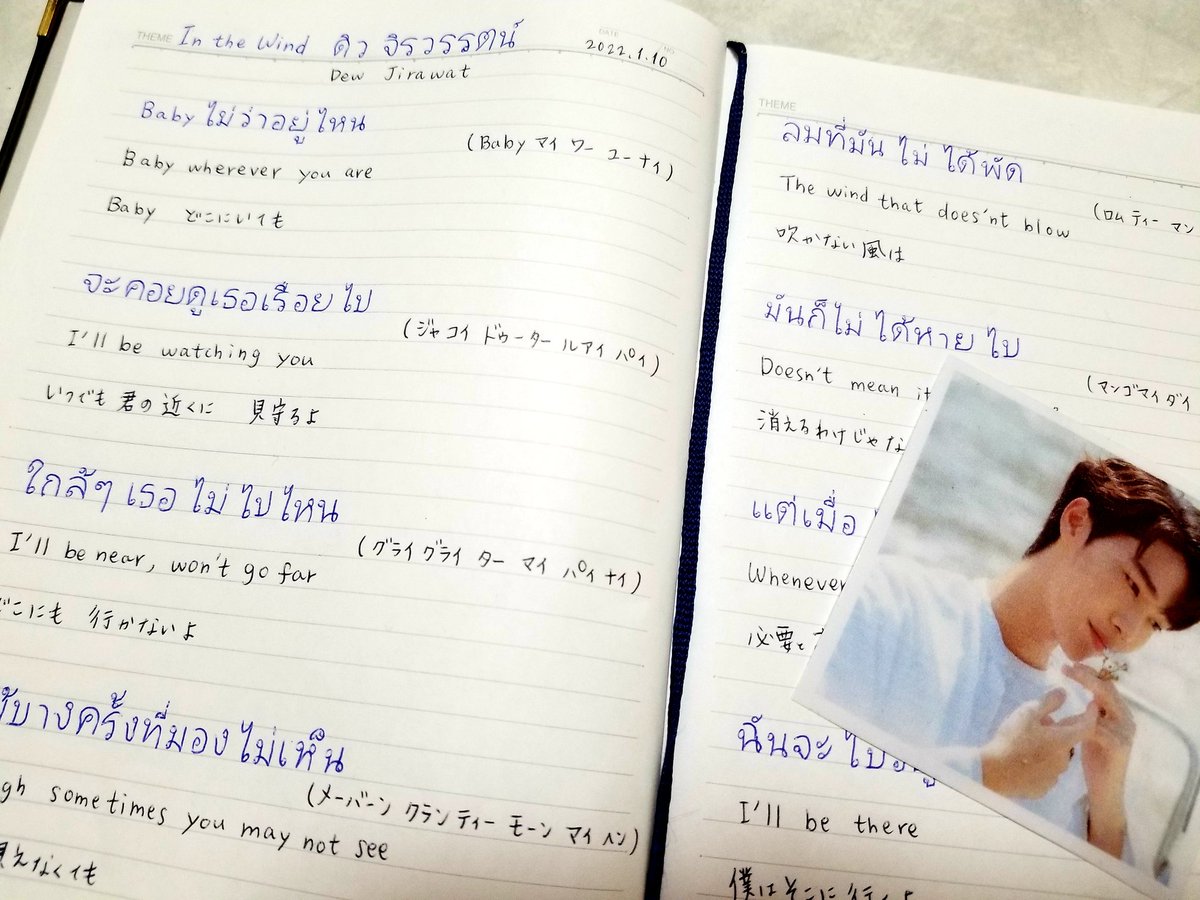 THEME In the Wind ดิว จิรวรรตน์ DATE 2022.1.10 NO
Dew Jirawat
Baby ไม่ว่าอยู่ไหน
(Baby マイ ワー ユーナイ)
Baby wherever you are
Baby どこにいても
จะคอยดูเธอเรือยไป
(ジャ コイ ドゥーター ルアイ パイ)
I'll be watching you
いつでも 君の近くに 見守るよ
ใกล้ๆ เธอ ไม่ ไปไหน
(グライグライ ター マイ パイ ナイ)
I'll be near, won't go far
どこにも 行かないよ
บางครั้งที่มอง ไม่เห็น
(メーバーン クランティー モーン マイ ヘン)
gh sometimes you may not see
見えなくても
THEME
ลมที่มัน ไม่ ได้พัด
(ロム ティー マン
The wind that does'nt blow
吹かない風は
มันก็ไม่ ได้หาย ไป
(マンゴマイダイ
Doesn't mean it
消えるわけじゃな
แต่เมื่อ
Whenever
必要と
ฉันจะ ไป
I'll be there
僕はそこに行くよ